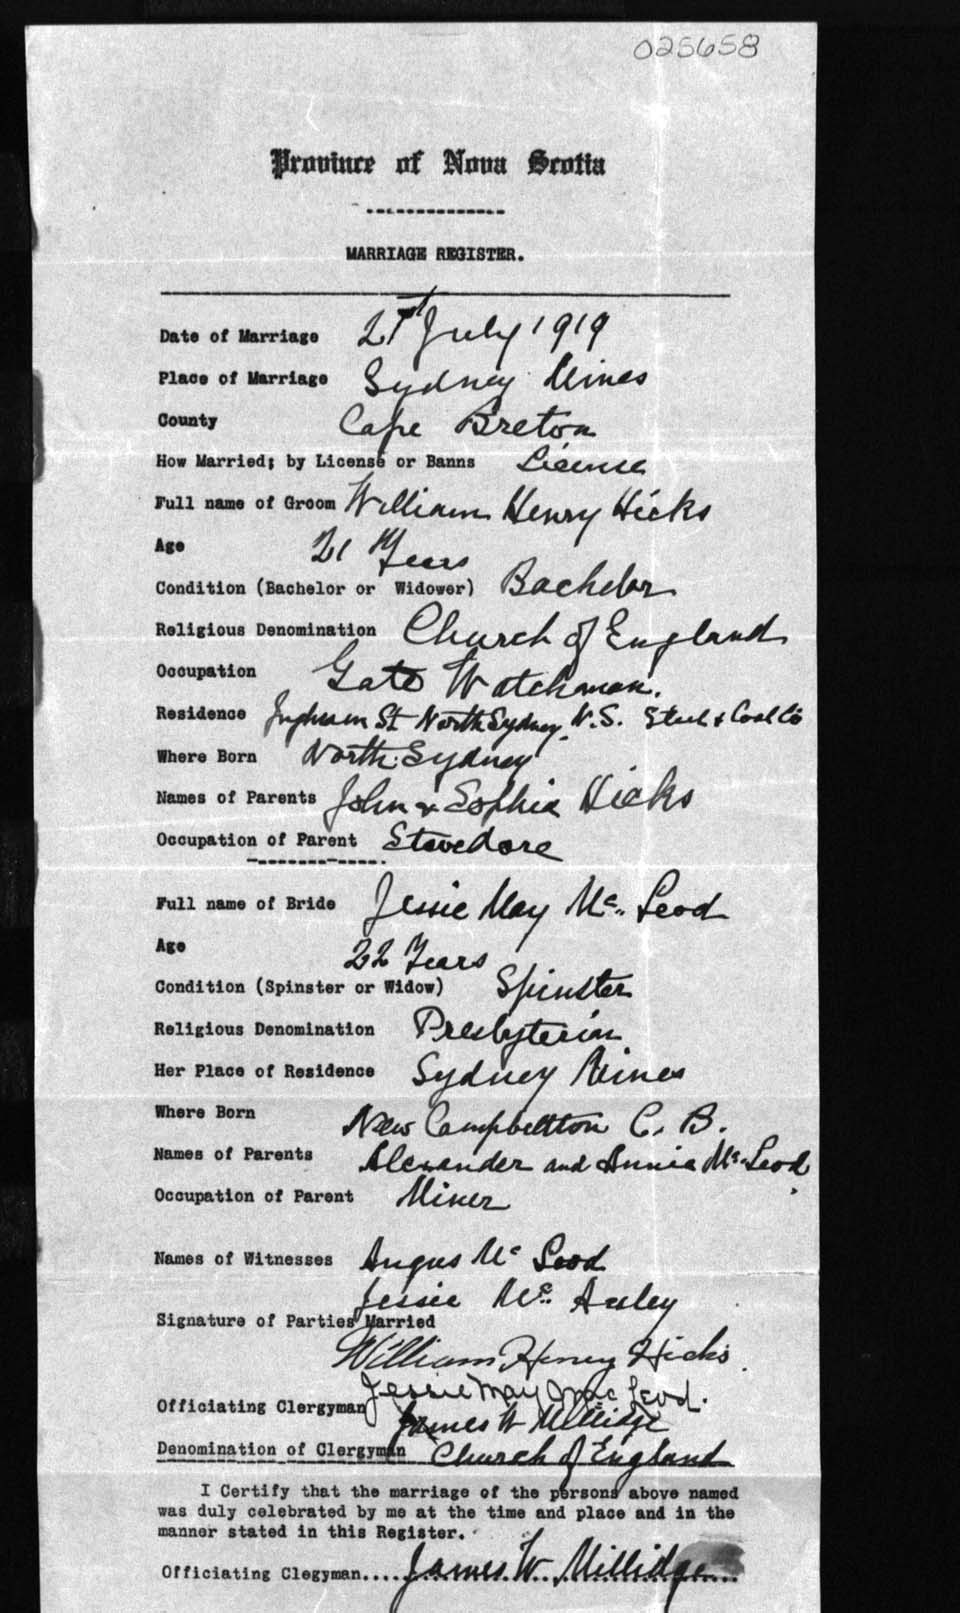 025658
Province of Nova Scotia
MARRIAGE REGISTER.
Date of Marriage 21st July 1919
Place of Marriage Sydney Mines
County Cape Breton
How Married; by License or Banns License
Full name of Groom William Henry Hicks
Age 21 Years
Condition (Bachelor or Widower) Bachelor
Religious Denomination Church of England
Occupation Gate Watchman.
Residence St North Sydney, N.S. Steel & Coal Co
Where Born North Sydney
Names of Parents John & Sophia Hicks
Occupation of Parent Stevedore
Full name of Bride Jessie May Mc. Leod
Age 22 Years
Condition (Spinster or Widow) Spinster
Religious Denomination Presbyterian
Her Place of Residence Sydney Mines
Where Born New Campbellton C. B.
Names of Parents Alexander and Annie Mc Leod
Occupation of Parent Miner
Names of Witnesses Angus Mc Leod
Jessie Mc.
Signature of Parties Married
William Henry Hicks
Jessie May MacLeod.
Officiating Clergyman James W Millidge
Denomination of Clergyman Church of England
I Certify that the marriage of the persons above named
was duly celebrated by me at the time and place and in the
manner stated in this Register.
Officiating Clegyman.... James W. Millidge